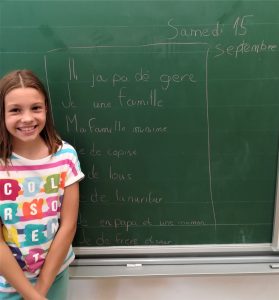 Samedi 15
Septembre
Il ja pa dé gere
Je une famille
Ma famille m'aime
de copine
de lous
de
en papa et une maman
de frère
COL
RSO